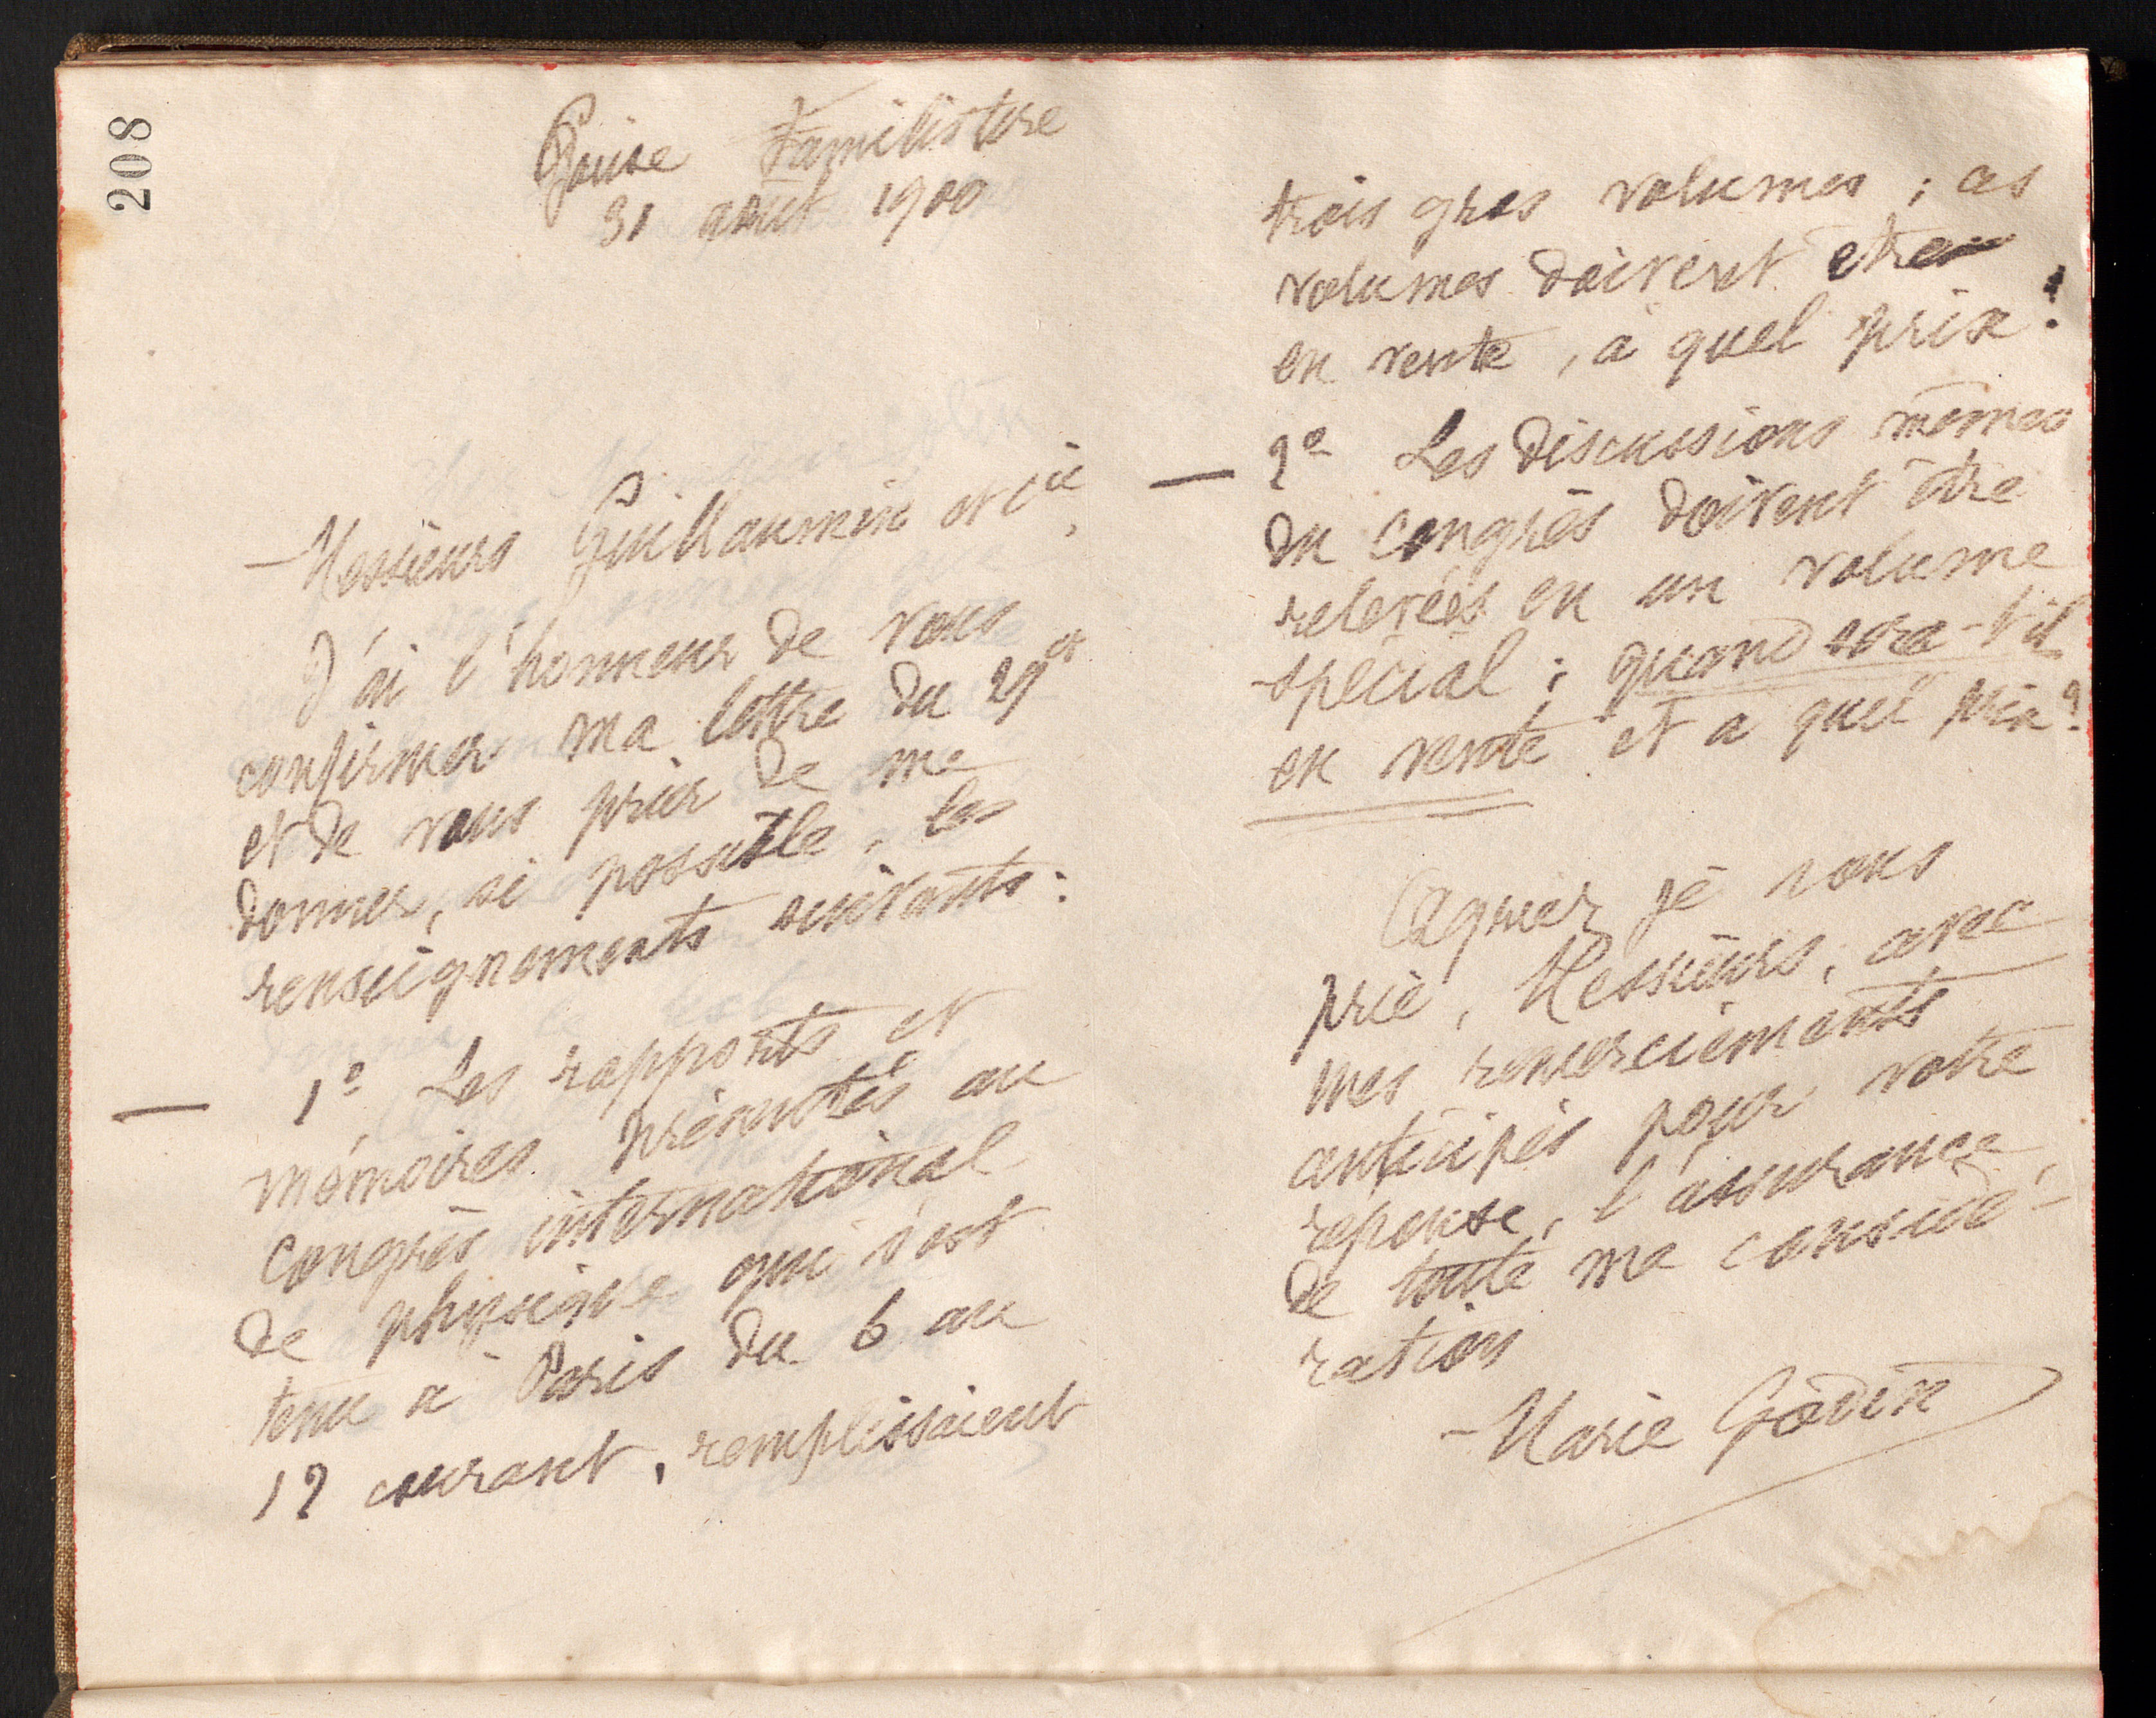 208
Guise Familistère
31 août 1900
Messieurs Guillaumin et Cie,
J'ai l'honneur de vous
confirmer ma lettre du 29 ct
et de vous prier de me
donner, si possible, les
renseignements suivants :
— 1° Les rapports et
mémoires présentés au
congrès international
de physique qui s'est
tenu à Paris du 6 au
12 courant, remplissaient
trois gros volumes ; ces
volumes doivent être
en vente, à quel prix ?
— 2° Les discussions mêmes
du congrès doivent être
relevées en un volume
spécial ; quand sera-t-il
en vente et à quel prix ?
Agréez je vous
prie, Messieurs, avec
mes remerciements
anticipés pour votre
réponse, l'assurance
de toute ma considé-
ration
Marie Godin